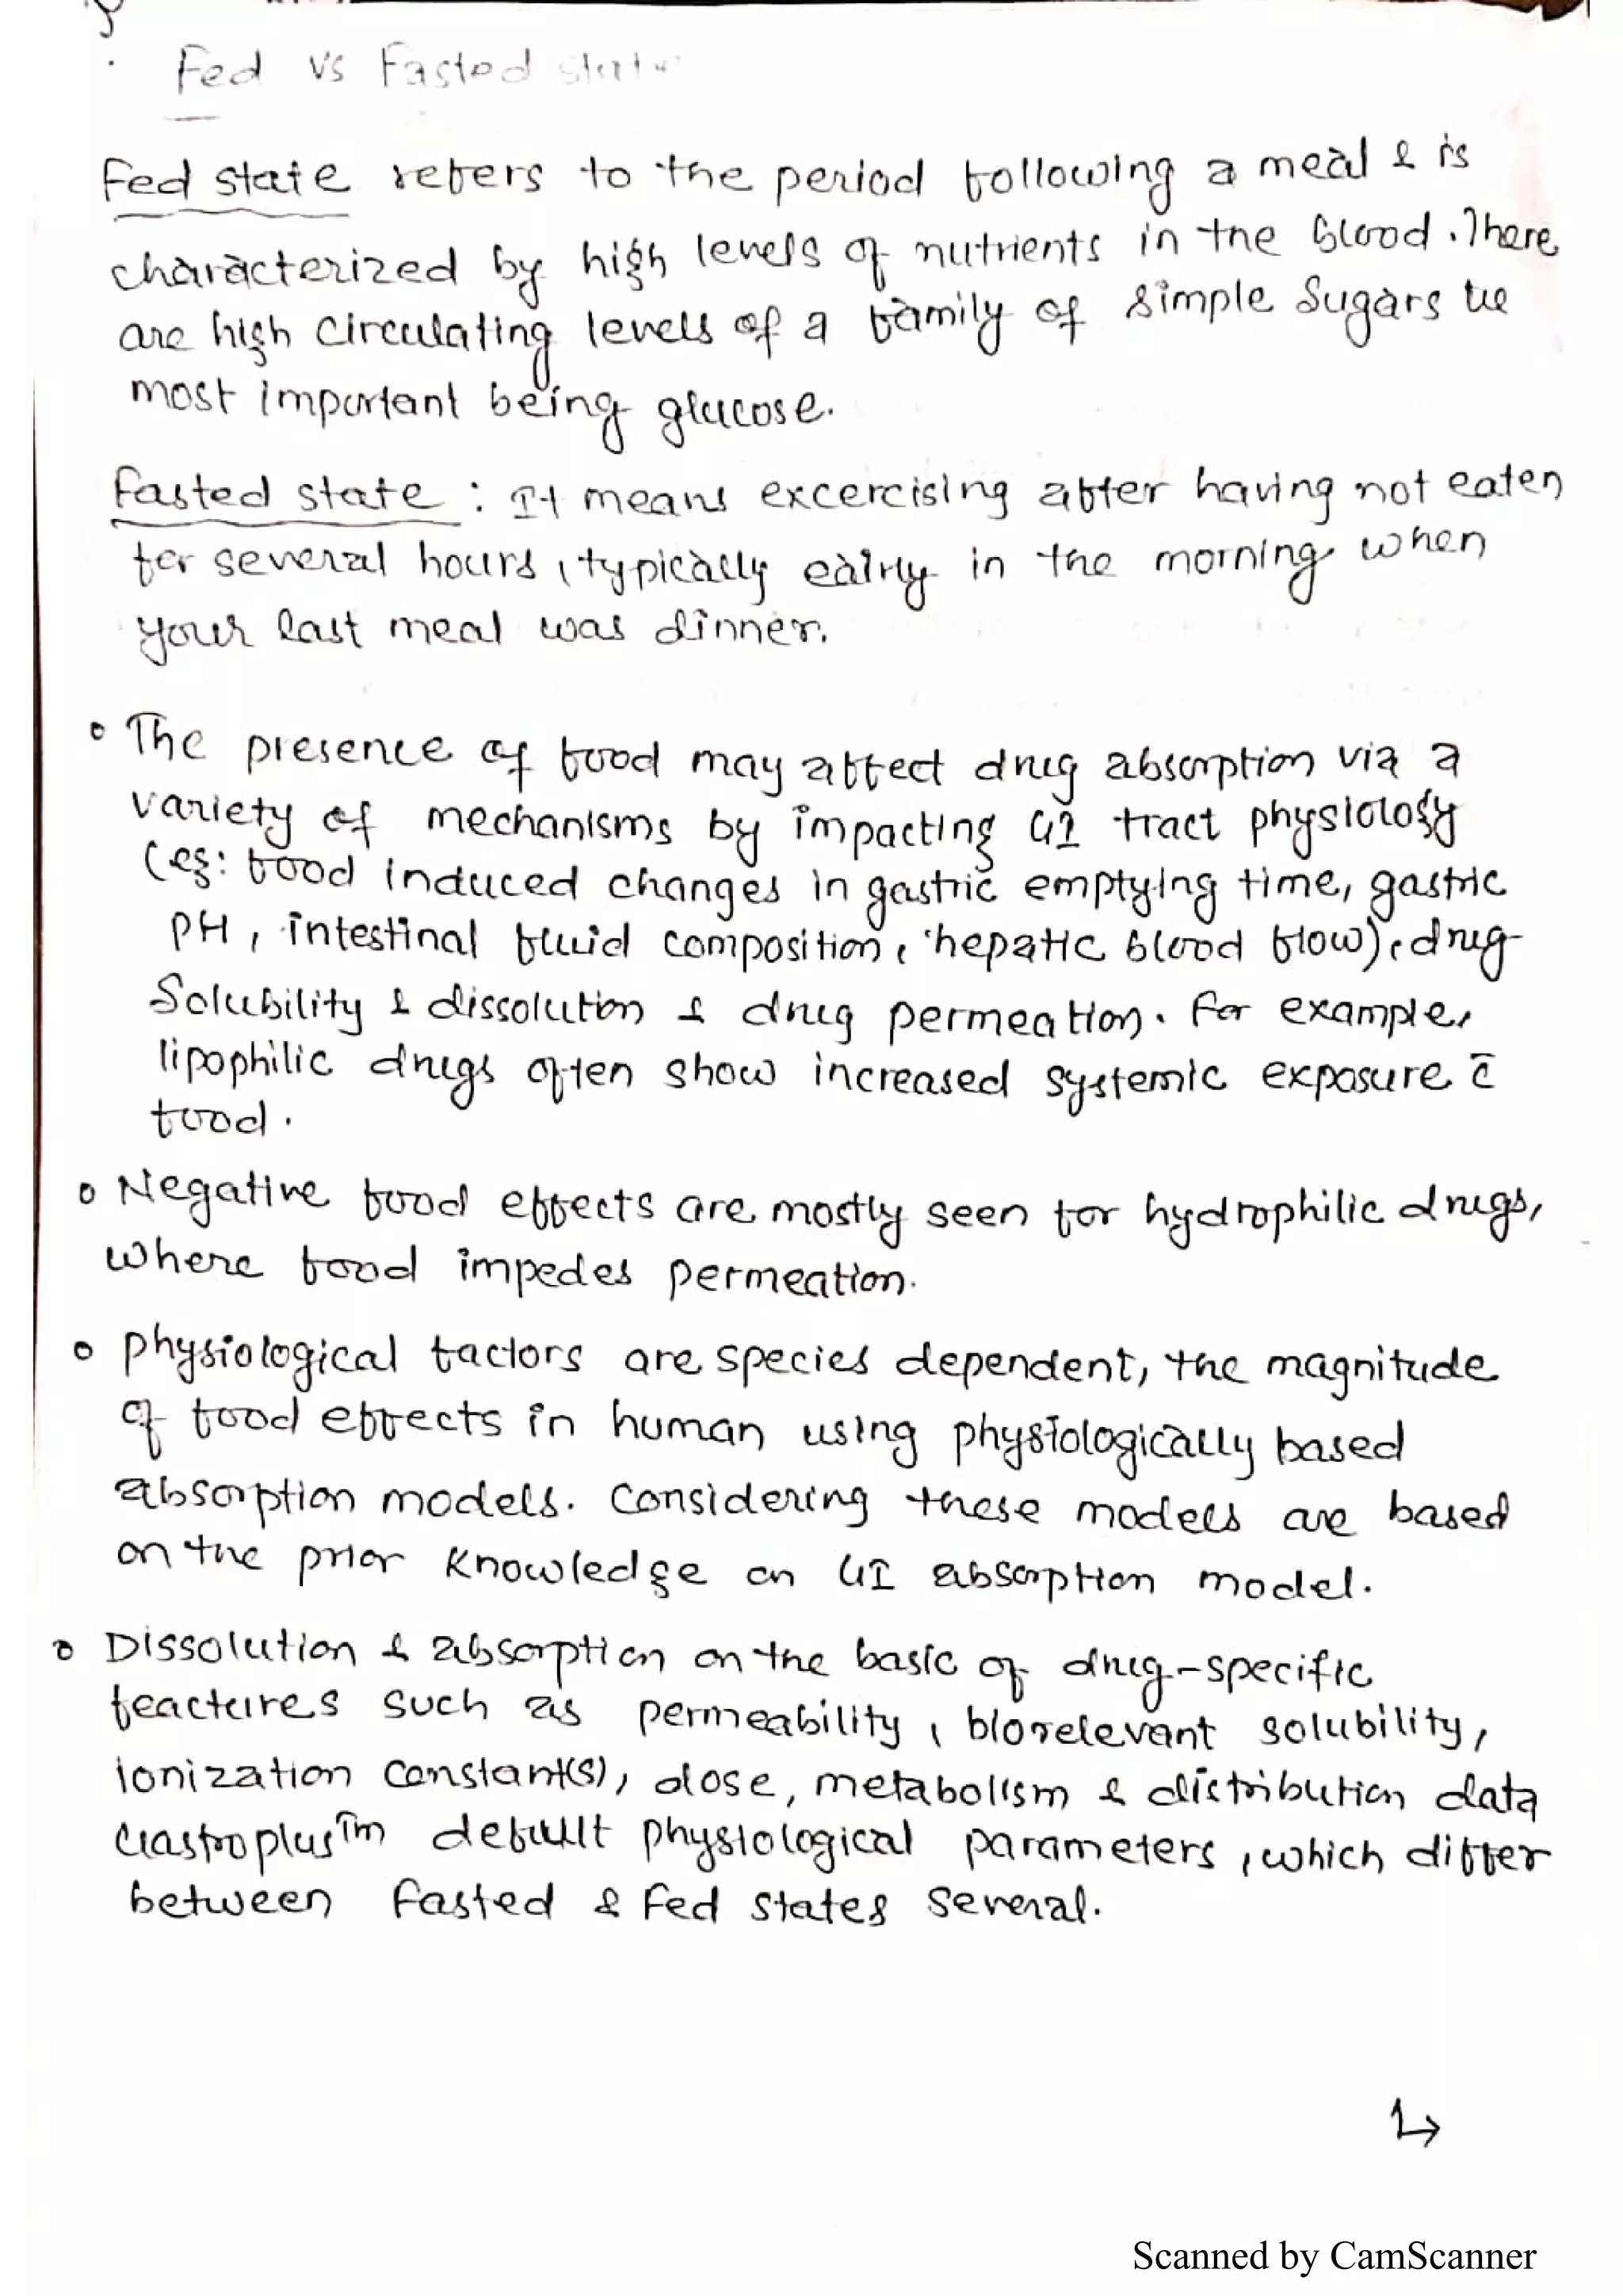 Fed vs Fasted state
Fed state refers to the period following a meal & is
characterized by high levels of nutrients in the blood. There
are high circulating levels of a family of simple sugars the
most important being glucose.
Fasted state : It means excercising after having not eaten
for several hours, typically ealrly in the morning when
your last meal was dinner.
• The presence of food may affect drug absorption via a
variety of mechanisms by impacting GI tract physiology
(eg: food induced changes in gastric emptying time, gastric
PH, intestinal fluid composition, hepatic blood flow), drug
Solubility & dissolution & drug permeation. For example,
lipophilic drugs often show increased systemic exposure c̄
food.
• Negative food effects are mostly seen for hydrophilic drugs,
where food impedes permeation.
• physiological factors are species dependent, the magnitude
of food effects in human using physiologically based
absorption models. Considering these models are based
on the prior knowledge on GI absorption model.
• Dissolution & absorption on the basic of drug-specific
feactures such as permeability, biorelevant solubility,
ionization constant(s), dose, metabolism & distribution data
Gastroplus™ default physiological parameters, which differ
between fasted & fed states several.
1→
Scanned by CamScanner